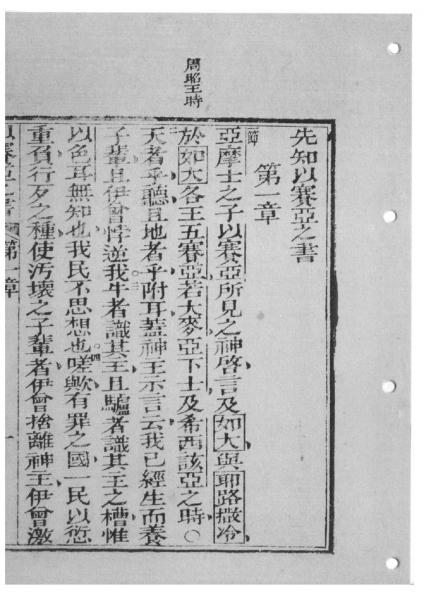 周昭王時
先知以賽亞之書
第一章
一節亞摩士之子以賽亞所見之神啓言及如大與耶路撒冷
於如大各王五賽亞若大麥亞下士及希西該亞之時○
天者乎聽且地者乎附耳蓋神主示言云我已經生而養
子輩且伊曾悖逆我牛者識其主且驢者識其主之槽惟
以色耳無知也我民不思想也嗟歟有罪之國一民以愆
重負行歹之種使污壞之子輩者伊曾捨離神主伊曾激
以賽亞之書 第一章 一